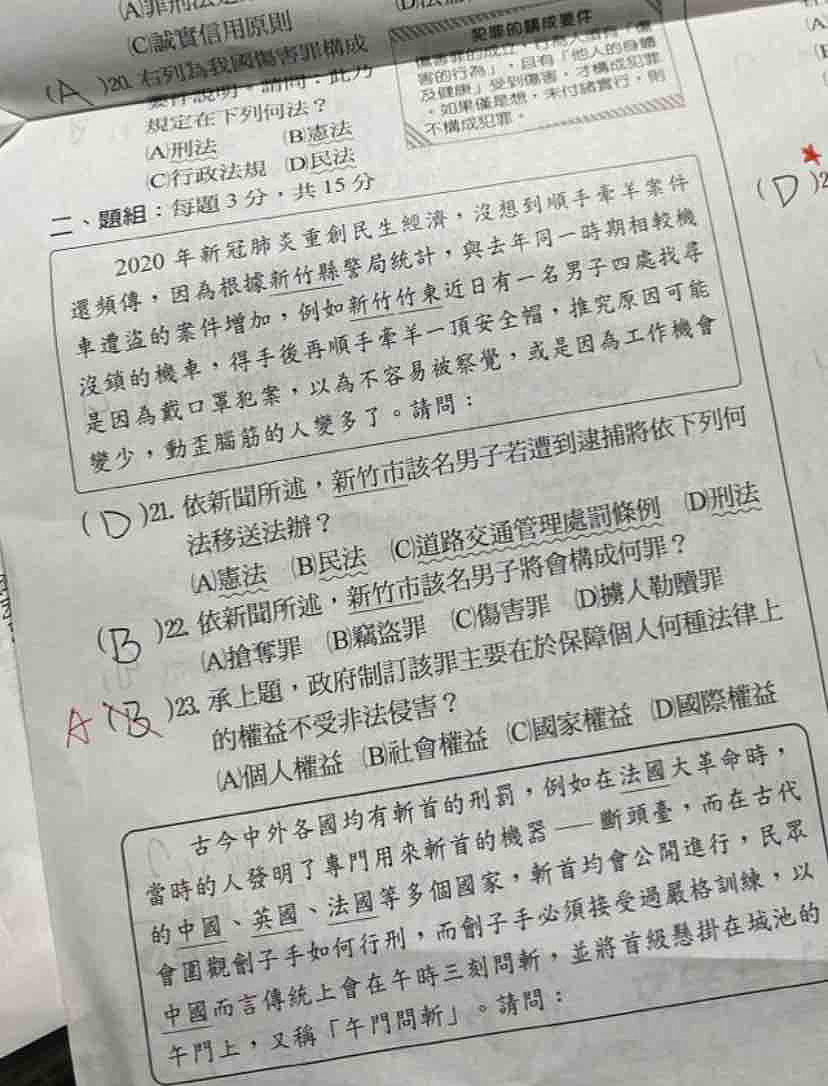 (C)誠實信用原則
犯罪的構成要件
害的行為」，且有「他人的身體
及健康」受到傷害，才構成犯罪
。如果僅是想，未付諸實行，則
不構成犯罪。
(A)20. 右列為我國傷害罪構成
要件說明。請問：此乃
規定在下列何法？
(A)刑法 (B)憲法
(C)行政法規 (D)民法
二、題組：每題 3 分，共 15 分
2020 年新冠肺炎重創民生經濟，沒想到順手牽羊案件
還頻傳，因為根據新竹縣警局統計，與去年同一時期相較機
車遭盜的案件增加，例如新竹竹東近日有一名男子四處找尋
沒鎖的機車，得手後再順手牽羊一頂安全帽，推究原因可能
是因為戴口罩犯案，以為不容易被察覺，或是因為工作機會
變少，動歪腦筋的人變多了。請問：
(D)21. 依新聞所述，新竹市該名男子若遭到逮捕將依下列何
法移送法辦？
(A)憲法 (B)民法 (C)道路交通管理處罰條例 (D)刑法
(B)22. 依新聞所述，新竹市該名男子將會構成何罪？
(A)搶奪罪 (B)竊盜罪 (C)傷害罪 (D)擄人勒贖罪
A (B)23. 承上題，政府制訂該罪主要在於保障個人何種法律上
的權益不受非法侵害？
(A)個人權益 (B)社會權益 (C)國家權益 (D)國際權益
古今中外各國均有斬首的刑罰，例如在法國大革命時，
當時的人發明了專門用來斬首的機器──斷頭臺，而在古代
的中國、英國、法國等多個國家，斬首均會公開進行，民眾
會圍觀劊子手如何行刑，而劊子手必須接受過嚴格訓練，以
中國而言傳統上會在午時三刻問斬，並將首級懸掛在城池的
午門上，又稱「午門問斬」。請問：
(D)2